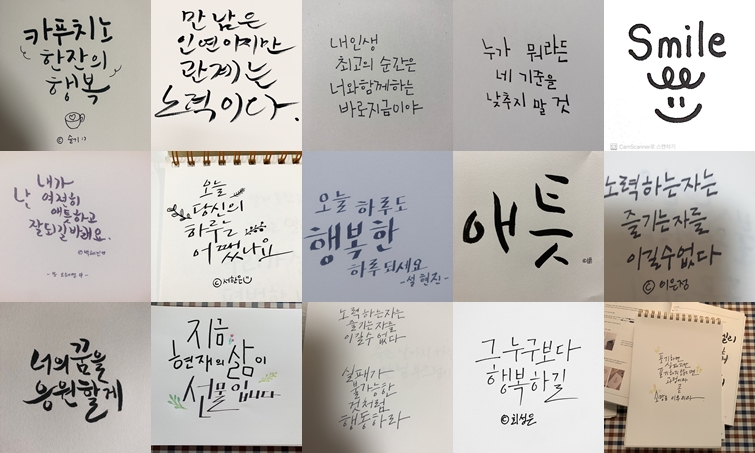 카푸치노
한잔의
행복
만남은
인연이지만
관계는
노력이다.
내 인생
최고의 순간은
너와함께하는
바로지금이야
누가 뭐라든
네 기준을
낮추지 말 것
Smile
CamScanner로 스캔하기
내가
난 여전히
애틋하고
잘되길바래요.
오늘
당신의
하루는
어땠나요
ⓒ서한은
오늘 하루도
행복한
하루되세요
-설현진-
애틋
노력하는자는
즐기는자를
이길수없다
ⓒ이은정
너의꿈을
응원할게
지금
현재의 삶이
선물입니다
노력하는자는
즐기는자를
이길수 없다
실패가
불가능한
것처럼
행동하라
그 누구보다
행복하길
ⓒ최성은